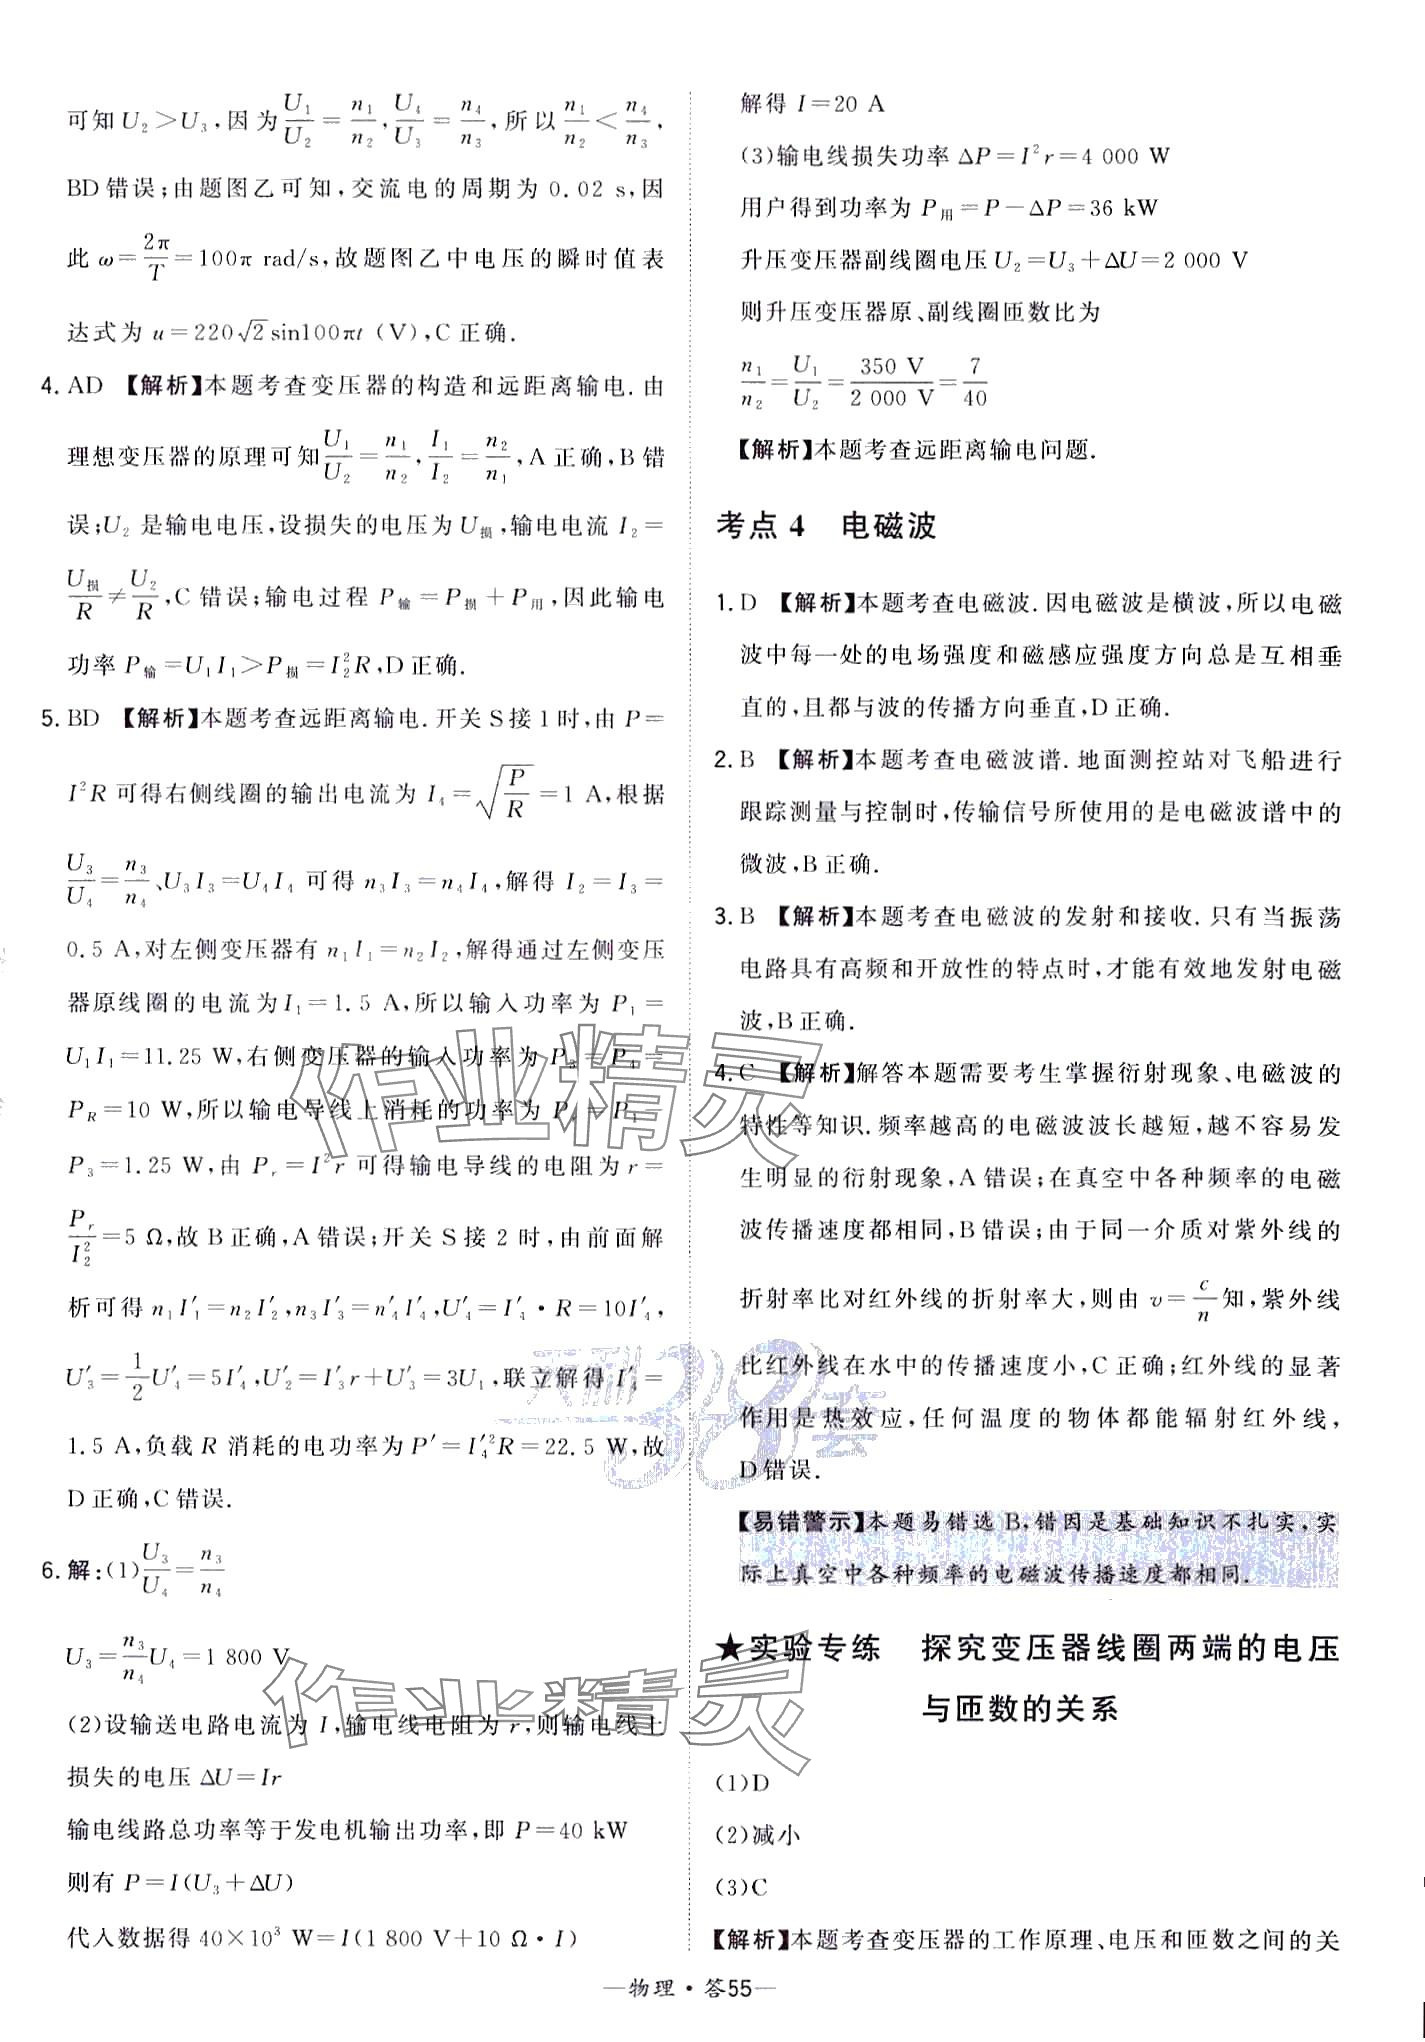 可知U₂>U₃,因为U₁/U₂=n₁/n₂,U₄/U₃=n₄/n₃,所以n₁/n₂<n₄/n₃,
BD错误;由题图乙可知,交流电的周期为0.02 s,因
此ω=2π/T=100π rad/s,故题图乙中电压的瞬时值表
达式为u=220√2sin100πt (V),C正确.
4. AD 【解析】本题考查变压器的构造和远距离输电.由
理想变压器的原理可知U₁/U₂=n₁/n₂,I₁/I₂=n₂/n₁,A正确,B错
误;U₂是输电电压,设损失的电压为U损,输电电流I₂=
U损/R≠U₂/R,C错误;输电过程P输=P损+P用,因此输电
功率P输=U₁I₁>P损=I₂²R,D正确.
5. BD 【解析】本题考查远距离输电.开关S接1时,由P=
I²R可得右侧线圈的输出电流为I₄=√(P/R)=1 A,根据
U₃/U₄=n₃/n₄、U₃I₃=U₄I₄可得n₃I₃=n₄I₄,解得I₂=I₃=
0.5 A,对左侧变压器有n₁I₁=n₂I₂,解得通过左侧变压
器原线圈的电流为I₁=1.5 A,所以输入功率为P₁=
U₁I₁=11.25 W,右侧变压器的输入功率为P₃=P₄=
P_R=10 W,所以输电导线上消耗的功率为P_r=P₁-
P₃=1.25 W,由P_r=I²r可得输电导线的电阻为r=
P_r/I₂²=5 Ω,故B正确,A错误;开关S接2时,由前面解
析可得n₁I′₁=n₂I′₂,n₃I′₃=n′₄I′₄,U′₄=I′₄·R=10I′₄,
U′₃=1/2U′₄=5I′₄,U′₂=I′₃r+U′₃=3U₁,联立解得I′₄=
1.5 A,负载R消耗的电功率为P′=I′₄²R=22.5 W,故
D正确,C错误.
6. 解:(1)U₃/U₄=n₃/n₄
U₃=n₃/n₄U₄=1 800 V
(2)设输送电路电流为I,输电线电阻为r,则输电线上
损失的电压ΔU=Ir
输电线路总功率等于发电机输出功率,即P=40 kW
则有P=I(U₃+ΔU)
代入数据得40×10³ W=I(1 800 V+10 Ω·I)
解得I=20 A
(3)输电线损失功率ΔP=I²r=4 000 W
用户得到功率为P用=P-ΔP=36 kW
升压变压器副线圈电压U₂=U₃+ΔU=2 000 V
则升压变压器原、副线圈匝数比为
n₁/n₂=U₁/U₂=350 V/2 000 V=7/40
【解析】本题考查远距离输电问题.
考点4 电磁波
1. D 【解析】本题考查电磁波.因电磁波是横波,所以电磁
波中每一处的电场强度和磁感应强度方向总是互相垂
直的,且都与波的传播方向垂直,D正确.
2. B 【解析】本题考查电磁波谱.地面测控站对飞船进行
跟踪测量与控制时,传输信号所使用的是电磁波谱中的
微波,B正确.
3. B 【解析】本题考查电磁波的发射和接收.只有当振荡
电路具有高频和开放性的特点时,才能有效地发射电磁
波,B正确.
4. C 【解析】解答本题需要考生掌握衍射现象、电磁波的
特性等知识.频率越高的电磁波波长越短,越不容易发
生明显的衍射现象,A错误;在真空中各种频率的电磁
波传播速度都相同,B错误;由于同一介质对紫外线的
折射率比对红外线的折射率大,则由v=c/n知,紫外线
比红外线在水中的传播速度小,C正确;红外线的显著
作用是热效应,任何温度的物体都能辐射红外线,
D错误.
【易错警示】本题易错选B,错因是基础知识不扎实,实
际上真空中各种频率的电磁波传播速度都相同.
★实验专练 探究变压器线圈两端的电压
与匝数的关系
(1)D
(2)减小
(3)C
【解析】本题考查变压器的工作原理、电压和匝数之间的关
—物理·答55—
作业精灵
天利38套
作业精灵